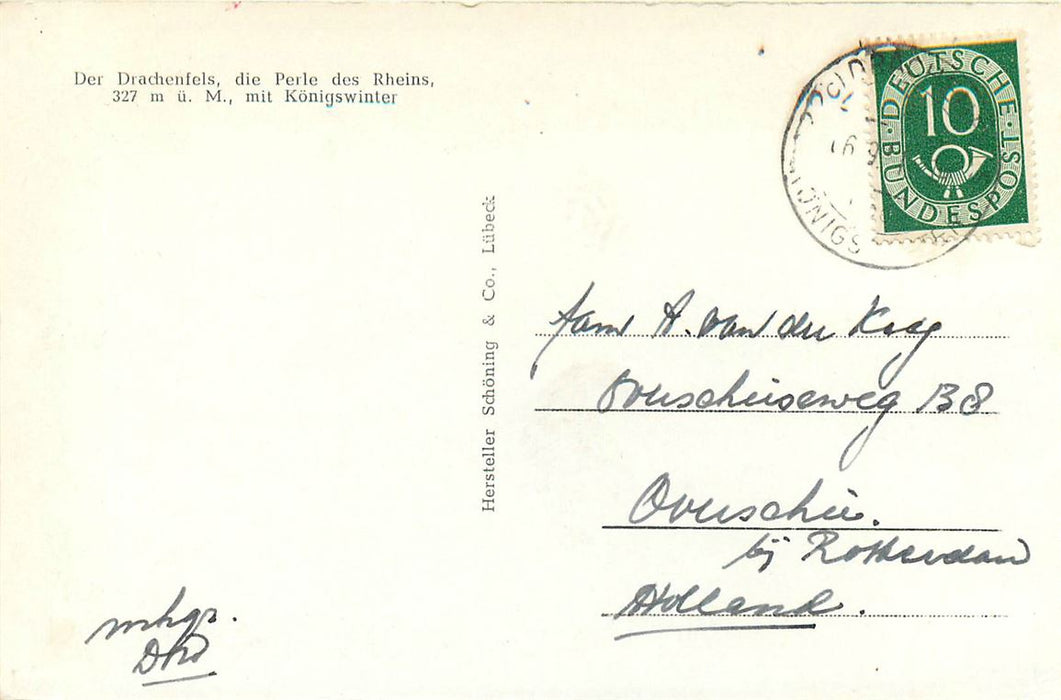 Der Drachenfels, die Perle des Rheins,
327 m ü. M., mit Königswinter
Hersteller Schöning & Co., Lübeck
DEUTSCHE
10
BUNDESPOST
fam A. van der Kooy
Overschieseweg 138
Overschie.
bij Rotterdam
Holland.